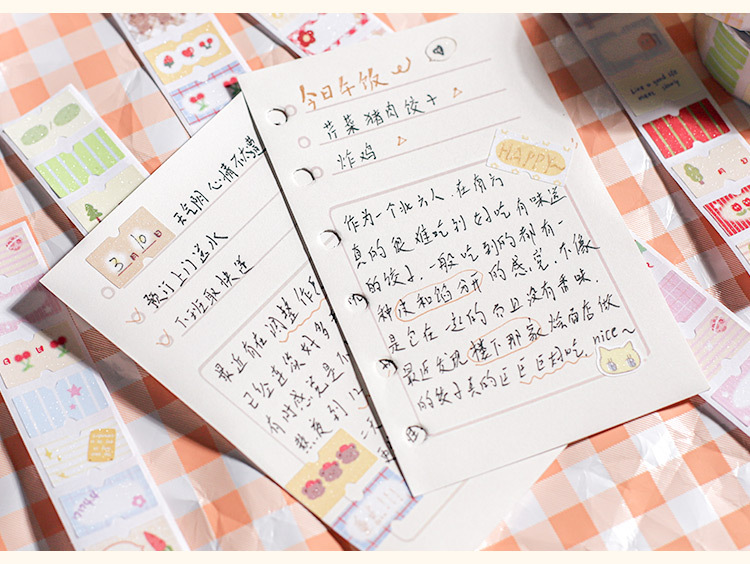 今日午饭
芹菜猪肉饺子
炸鸡
HAPPY
作为一个北方人,在南方
真的很难吃到好吃有味道
的饺子,一般吃到的都有一
种皮和馅分开的感觉,不像
是包在一起的而且没有香味.
最近发现楼下那家烩面店做
的饺子真的巨巨巨好吃,nice~
天气阴 心情不太
3月10
预订上门送水
下班取快递
最近有在调整作
已经连续好多
有时感觉是
熬夜到12
Live a good life